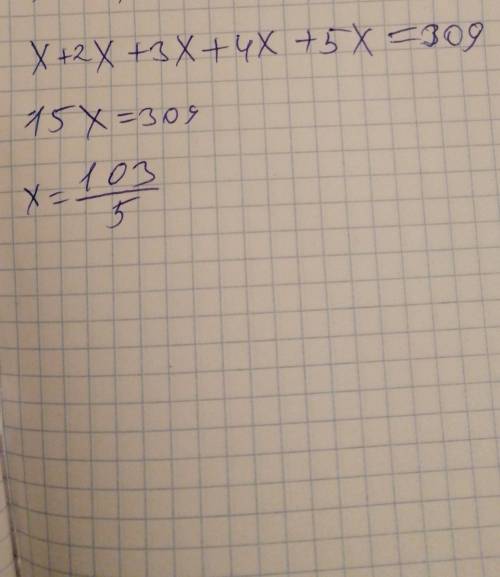 x+2x+3x+4x+5x=309
15x=309
x=103/5